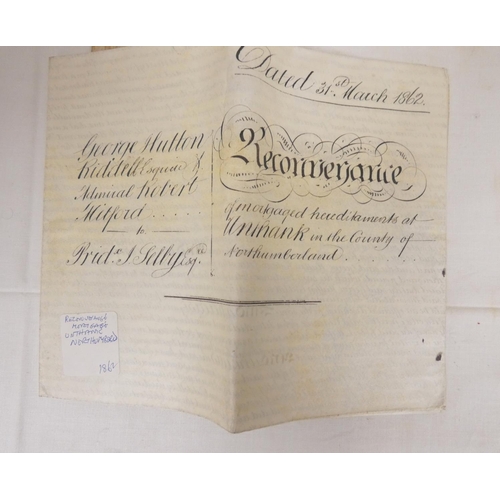 Dated 31st March 1862.
George Hutton
Riddell Esquire &
Admiral Robert
Mitford . . . . .
to
Prid. J. Selby Esqre
Reconveyance
of mortgaged hereditaments at
in the County of
Northumberland . . . . . . . .
RECONVEYANCE
MORTGAGE
1862